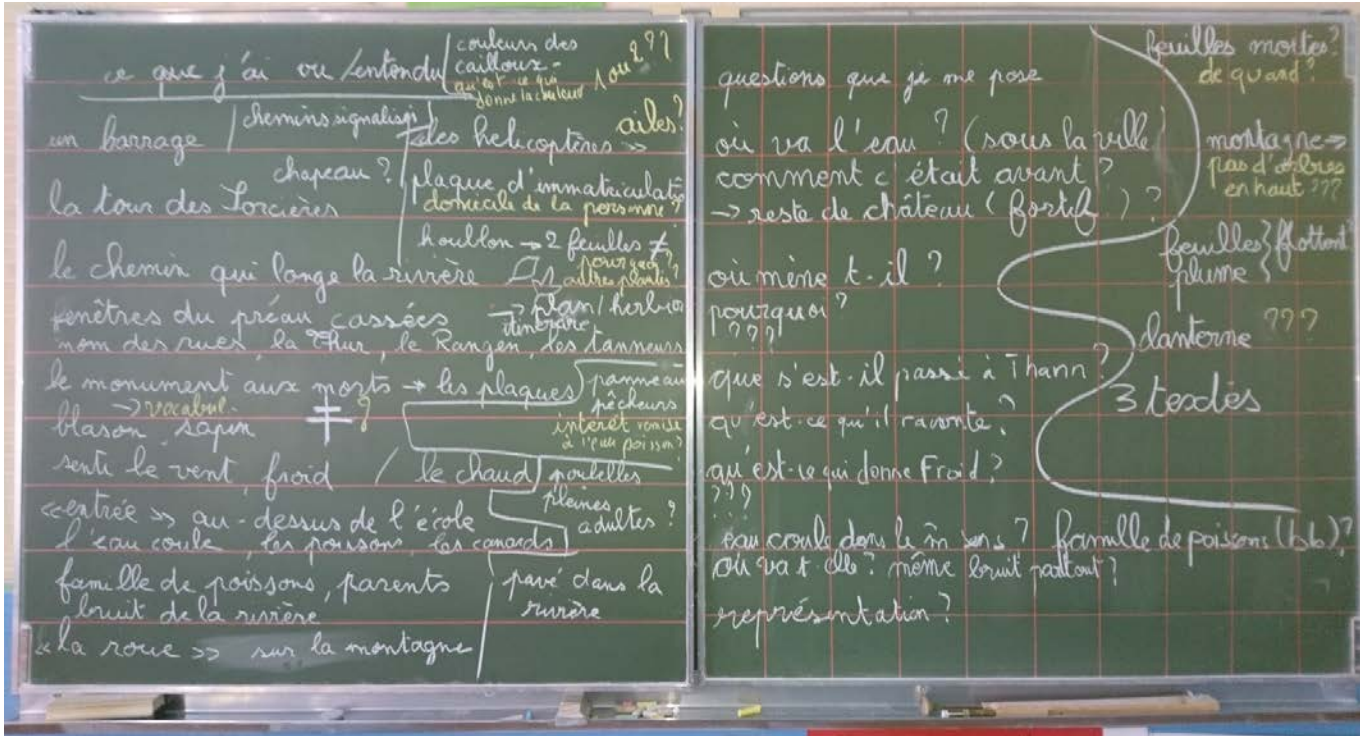 ce que j'ai vu / entendu
couleurs des
cailloux -
qu'est ce qui
donne la couleur
1 ou 2 ??
un barrage
chemins signalisé
"des hélicoptères"
ailes?
chapeau ?
plaque d'immatriculat°
domicile de la personne ?
la tour des Sorcières
houblon → 2 feuilles ≠
pourquoi?
autres plantes?
le chemin qui longe la rivière
fenêtres du préau cassées
→ plan / herbier
itinéraire
nom des rues, la Thur, le Rangen, les tanneurs
le monument aux morts → les plaques
→ vocabul.
blason, sapin
?
panneau
pêcheurs
intérêt remise
à l'eau poisson?
senti le vent, froid / le chaud
poubelles
pleines
adultes ?
«entrée» au-dessus de l'école
l'eau coule, les poissons, les canards
famille de poissons, parents
bruit de la rivière
pavé dans la
rivière
«la roue» sur la montagne
questions que je me pose
où va l'eau ? (sous la ville)
comment c'était avant ?
→ reste de château (fortif.) ?
où mène t-il ?
pourquoi ?
????
que s'est-il passé à Thann ?
qu'est-ce qu'il raconte ?
qu'est-ce qui donne Froid ?
???
eau coule dans le m̂ sens ? famille de poissons (bb) ?
où va t elle ? même bruit partout ?
représentation ?
feuilles mortes?
de quand ?
montagne →
pas d'arbres
en haut ???
feuilles } flottent?
plume
lanterne ???
3 textes